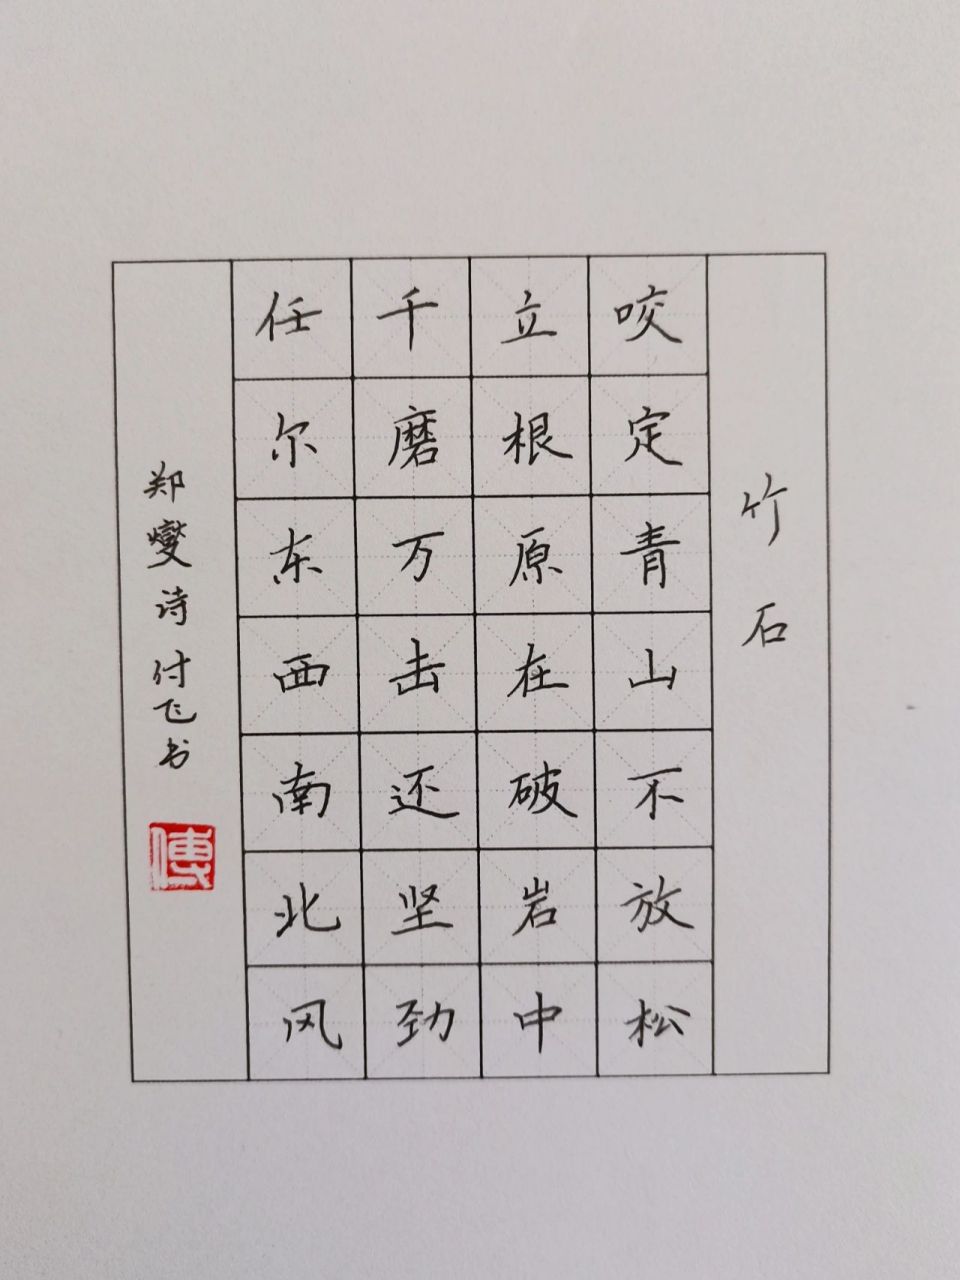 竹石
咬定青山不放松
立根原在破岩中
千磨万击还坚劲
任尔东西南北风
郑燮诗 付飞书
傅